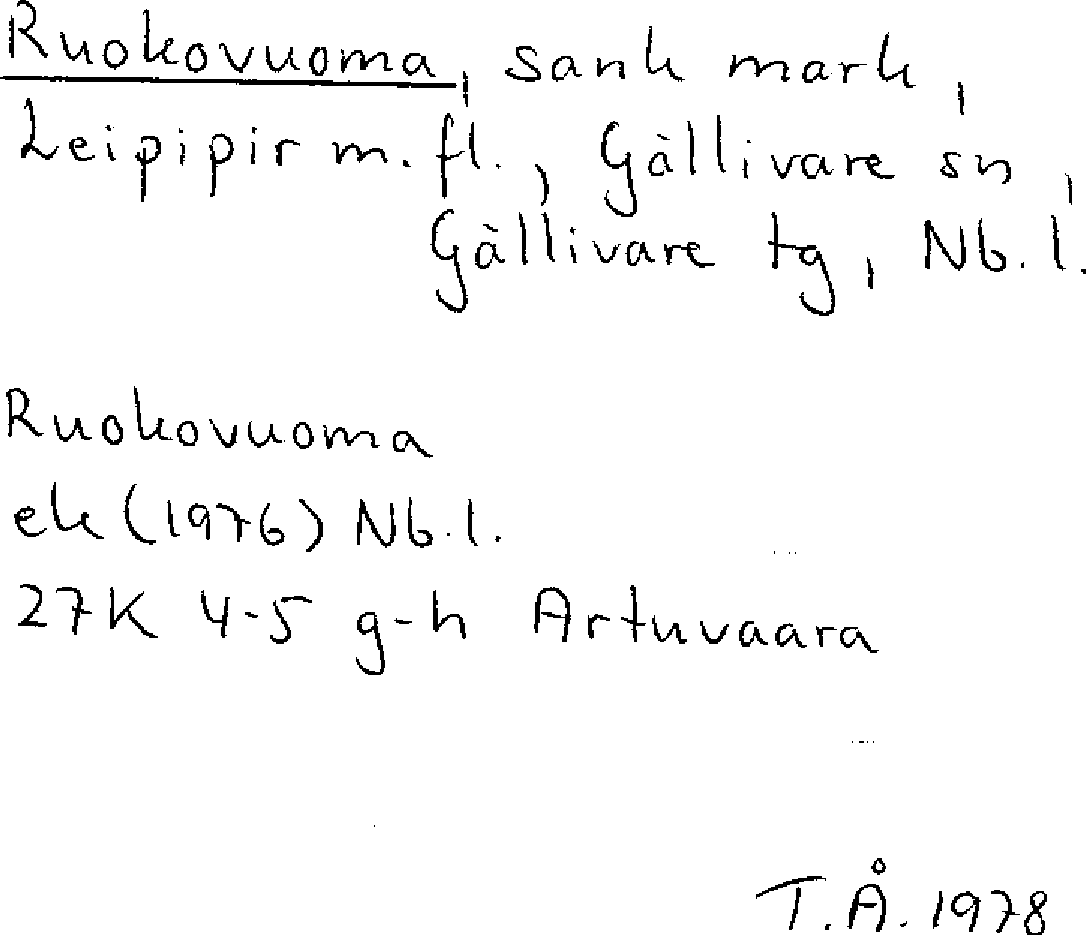 Ruokovuoma, sank mark,
Leipipir m. fl., Gällivare sn,
Gällivare tg, Nb. l.
Ruokovuoma
ek (1976) Nb. l.
27K 4-5 g-h Artuvaara
T.Å. 1978